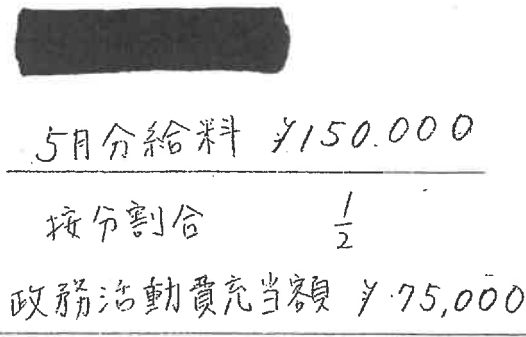 5月分給料 ¥150.000
按分割合 1/2
政務活動費充当額 ¥75,000